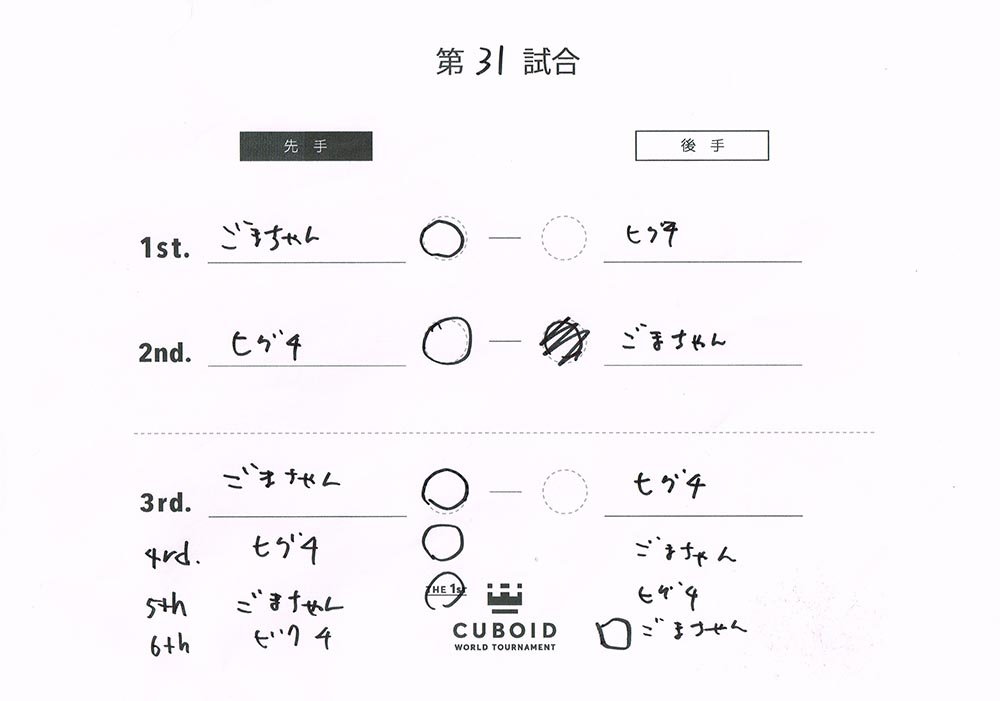 第 31 試合
先 手 後 手
1st. ごまちゃん ○ — ヒグチ
2nd. ヒグチ ○ — ごまちゃん
3rd. ごまちゃん ○ — ヒグチ
4rd. ヒグチ ○ ごまちゃん
5th ごまちゃん ○ ヒグチ
THE 1st
6th ヒグチ ○ ごまちゃん
CUBOID
WORLD TOURNAMENT